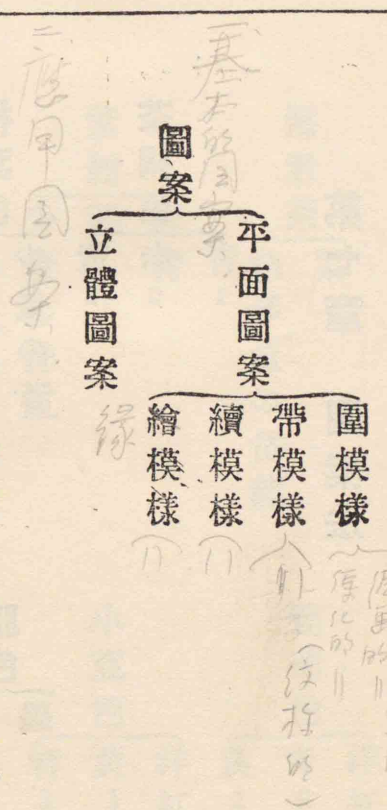 一基本的図案
二應用図案
圖案
平面圖案
立體圖案
圍模樣
帶模樣
續模樣
繪模樣
縁